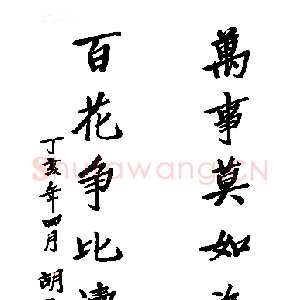 萬事莫如
百花争比
丁亥年一月胡
Shufawang.CN